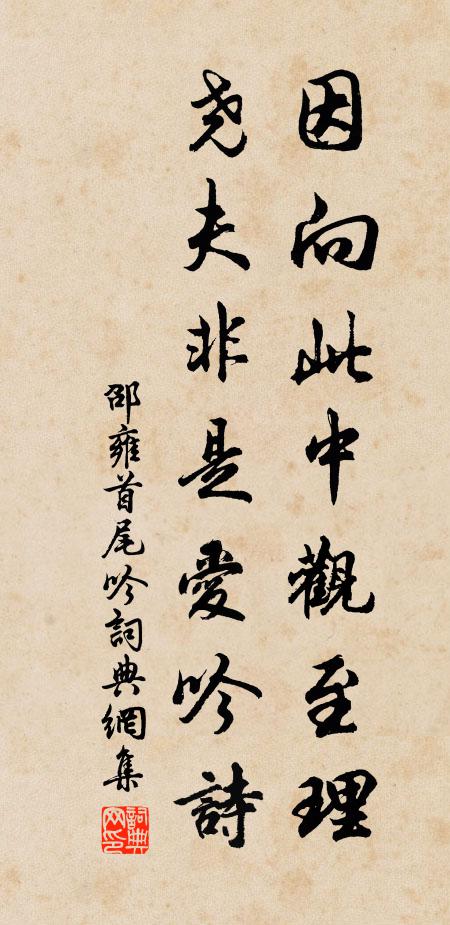 因向此中觀至理
堯夫非是愛吟詩
邵雍首尾吟詞典網集
詞典网印